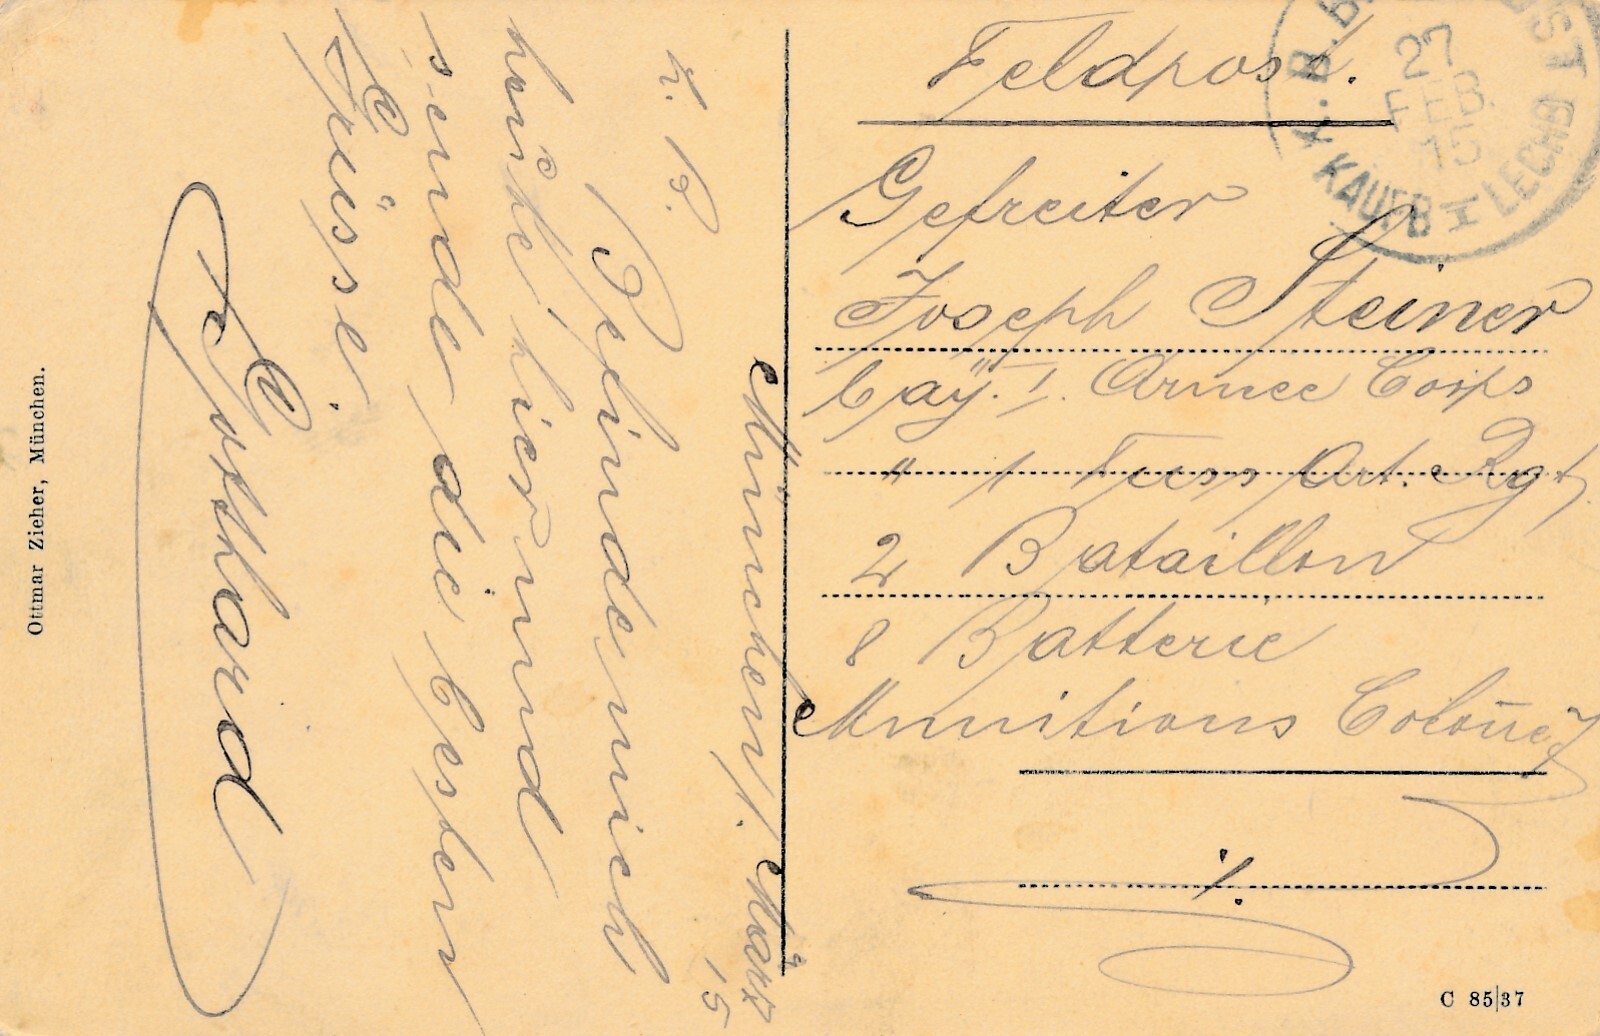 München, 1. März
15
L. B.
Befinde mich
heute hier und
sende die besten
Grüsse.
Gotthard
Ottmar Zieher, München.
Feldpost.
27
FEB.
15
KAUFB I LECHB
Gefreiter
Joseph Steiner
bay. I. Armee Corps
" 1 Fuss Art. Rgt
2 Bataillon
8 Batterie
Munitions Colonne
1.
C 85/37